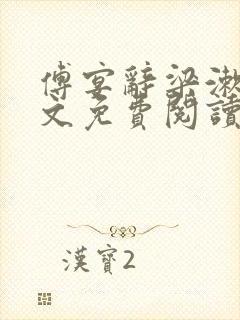 傅宴辭梁漱
文免費閱讀
漢寶2